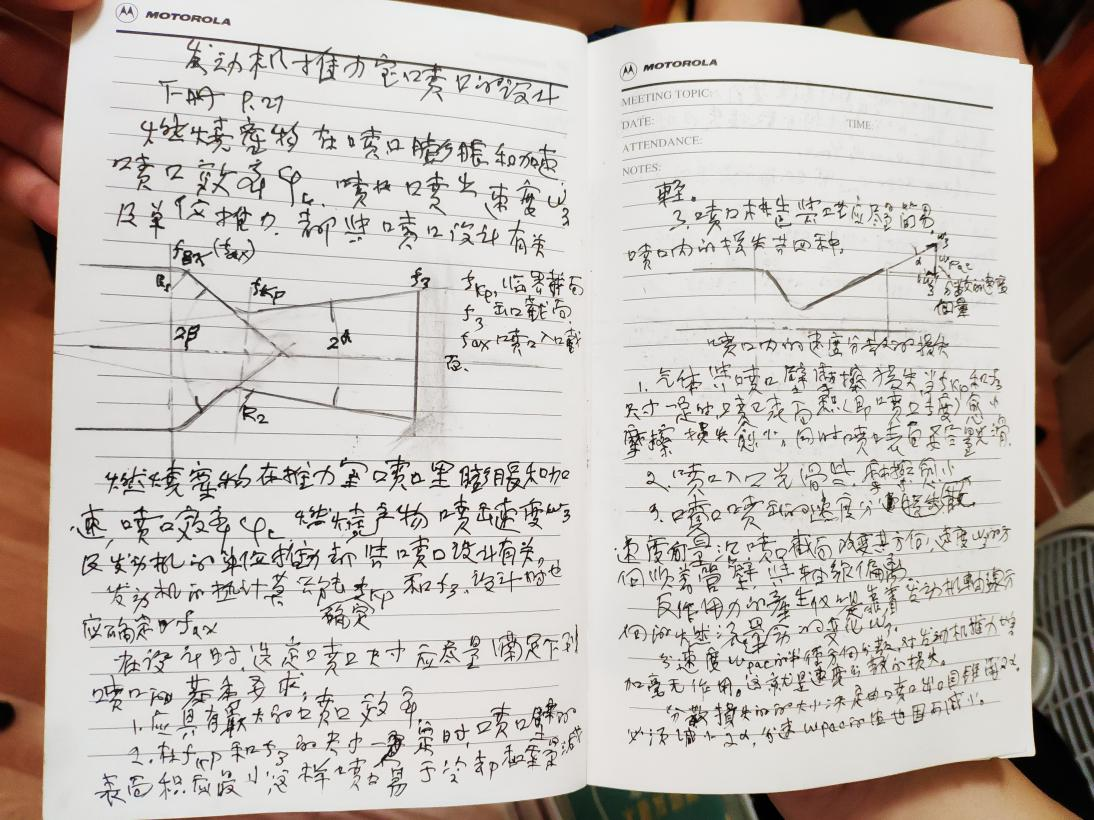 MOTOROLA
发动机推力室喷口的设计
下册 P.27
燃烧产物在喷口膨胀和加速
喷口效率φc 喷口喷出速度ω3
及单位推力都与喷口设计有关
fвх(fax)
R1
fкр
f3
2β
2α
R2
fкр 临界截面
f3 出口截面
fax 喷口入口截
面.
燃烧产物在推力室喷口里膨胀和加
速,喷口效率φc 燃烧产物喷出速度ω3
及发动机的单位推动都与喷口设计有关,
发动机的热计算 fкр 和 f3. 设计时也
确定
应确定 fax
在设计时,选定喷口尺寸应尽量满足下列
喷口的基本要求:
1.应具有最大的喷口效率
2.在fкр和f3的尺寸一定时,喷口壁的
表面积应最小这样喷口易于冷却和重量减
MOTOROLA
MEETING TOPIC:
DATE: TIME:
ATTENDANCE:
NOTES:
轻。
3.喷口构造与工艺应尽量简易
喷口内的损失共四种,
ω3
α
ωрас
分散的速度
向量
喷口内的速度分散的损失
1.气体与喷口壁磨擦损失当fкр和f3
尺寸一定时喷口表面积(即喷口长度)愈小
摩擦损失愈小,同时喷口表面要尽量光滑
2.喷口入口光滑些,摩擦愈小
3.喷口喷出的速度分
速度向量沉喷口截面改变其方向,速度ω3的方
向顺着管壁与轴线偏离
反作用力的产生仅是靠着发动机轴线方
向的
分速度ωрас的半径方向分散,对发动机推力增
加毫无作用。这就是速度分散的损失。
分散损失的大小决定由喷口出口圆锥角2α。
必须减小2α,分速ωрас的值也因而减小。